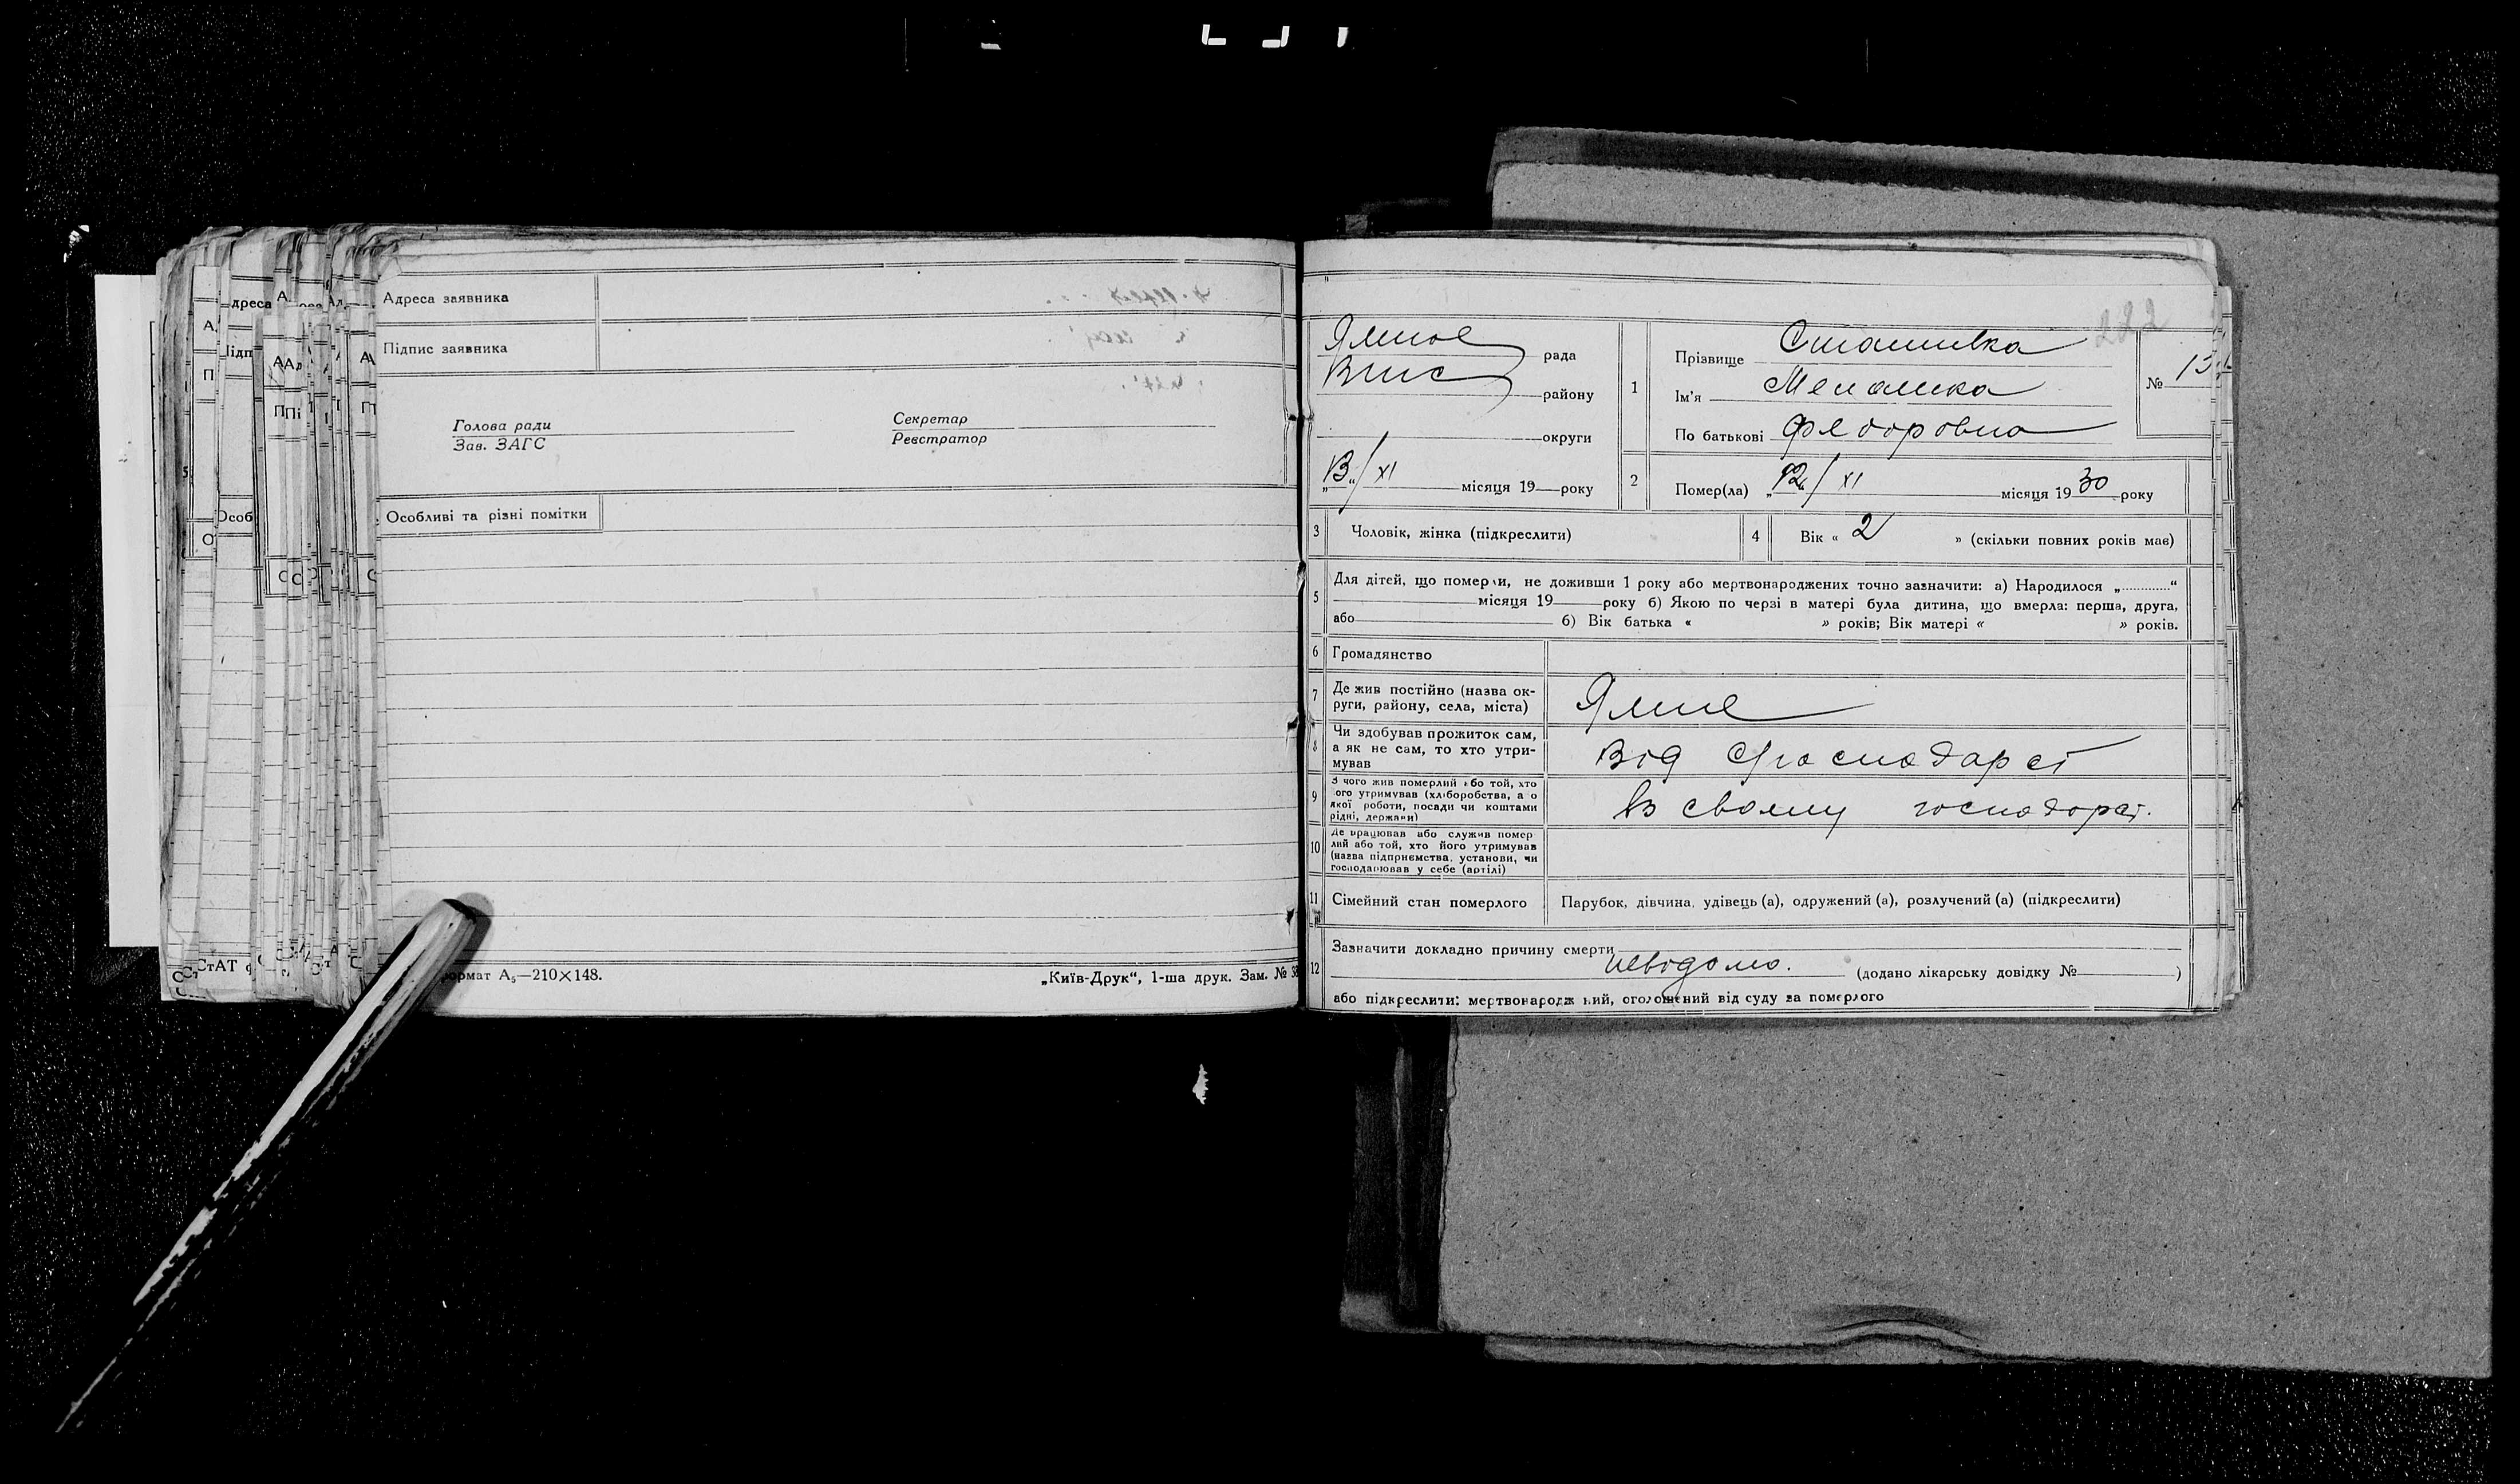 Адреса заявника
Підпис заявника
Голова ради
Зав. ЗАГС
Секретар
Реєстратор
Особливі та різні помітки
формат А5—210×148.
„Київ-Друк“, 1-ша друк. Зам. № 38
282
Ямное рада
району
округи
13/XI місяця 19 року
1
Прізвище Сташивка
Ім'я Меланка
По батькові Федоровна
№ 13
2
Помер(ла) „12“/XI місяця 1930 року
3 Чоловік, жінка (підкреслити)
4 Вік « 2 » (скільки повних років має)
5 Для дітей, що померли, не доживши 1 року або мертвонароджених точно зазначити: а) Народилося „............“
місяця 19 року б) Якою по черзі в матері була дитина, що вмерла: перша, друга,
або б) Вік батька « » років; Вік матері « » років.
6 Громадянство
7 Де жив постійно (назва ок-
руги, району, села, міста) Ямне
8 Чи здобував прожиток сам,
а як не сам, то хто утри-
мував Від
9 З чого жив померлий або той, хто
його утримував (хліборобства, а о
якої роботи, посади чи коштами
рідні, держави) В своему господарст.
10 Де працював або служив помер
лий або той, хто його утримував
(назва підприємства, установи, чи
господарював у себе (артілі)
11 Сімейний стан померлого Парубок, дівчина, удівець (а), одружений (а), розлучений (а) (підкреслити)
12 Зазначити докладно причину смерти
невідомо. (додано лікарську довідку № )
або підкреслити: мертвонароджений, оголошений від суду за померлого